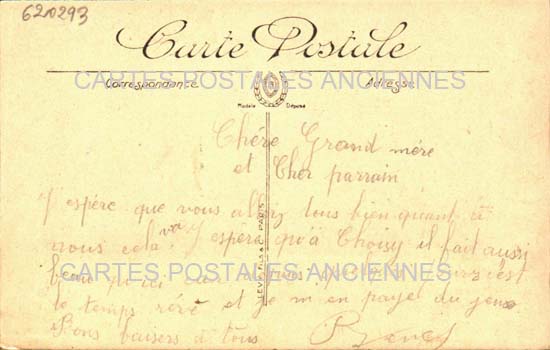 620293
Carte Postale
CARTES POSTALES ANCIENNES
Correspondance
Adresse
Modèle Déposé
Chère Grand mère
et Cher parrain
J'espère que vous allez tous bien quant à
nous cela va J'espère qu'à Choisy il fait aussi
beau
CARTES POSTALES ANCIENNES
c'est
le temps rêvé et je m'en paye du
Bons baisers à tous
LEVY FILS & Cie PARIS